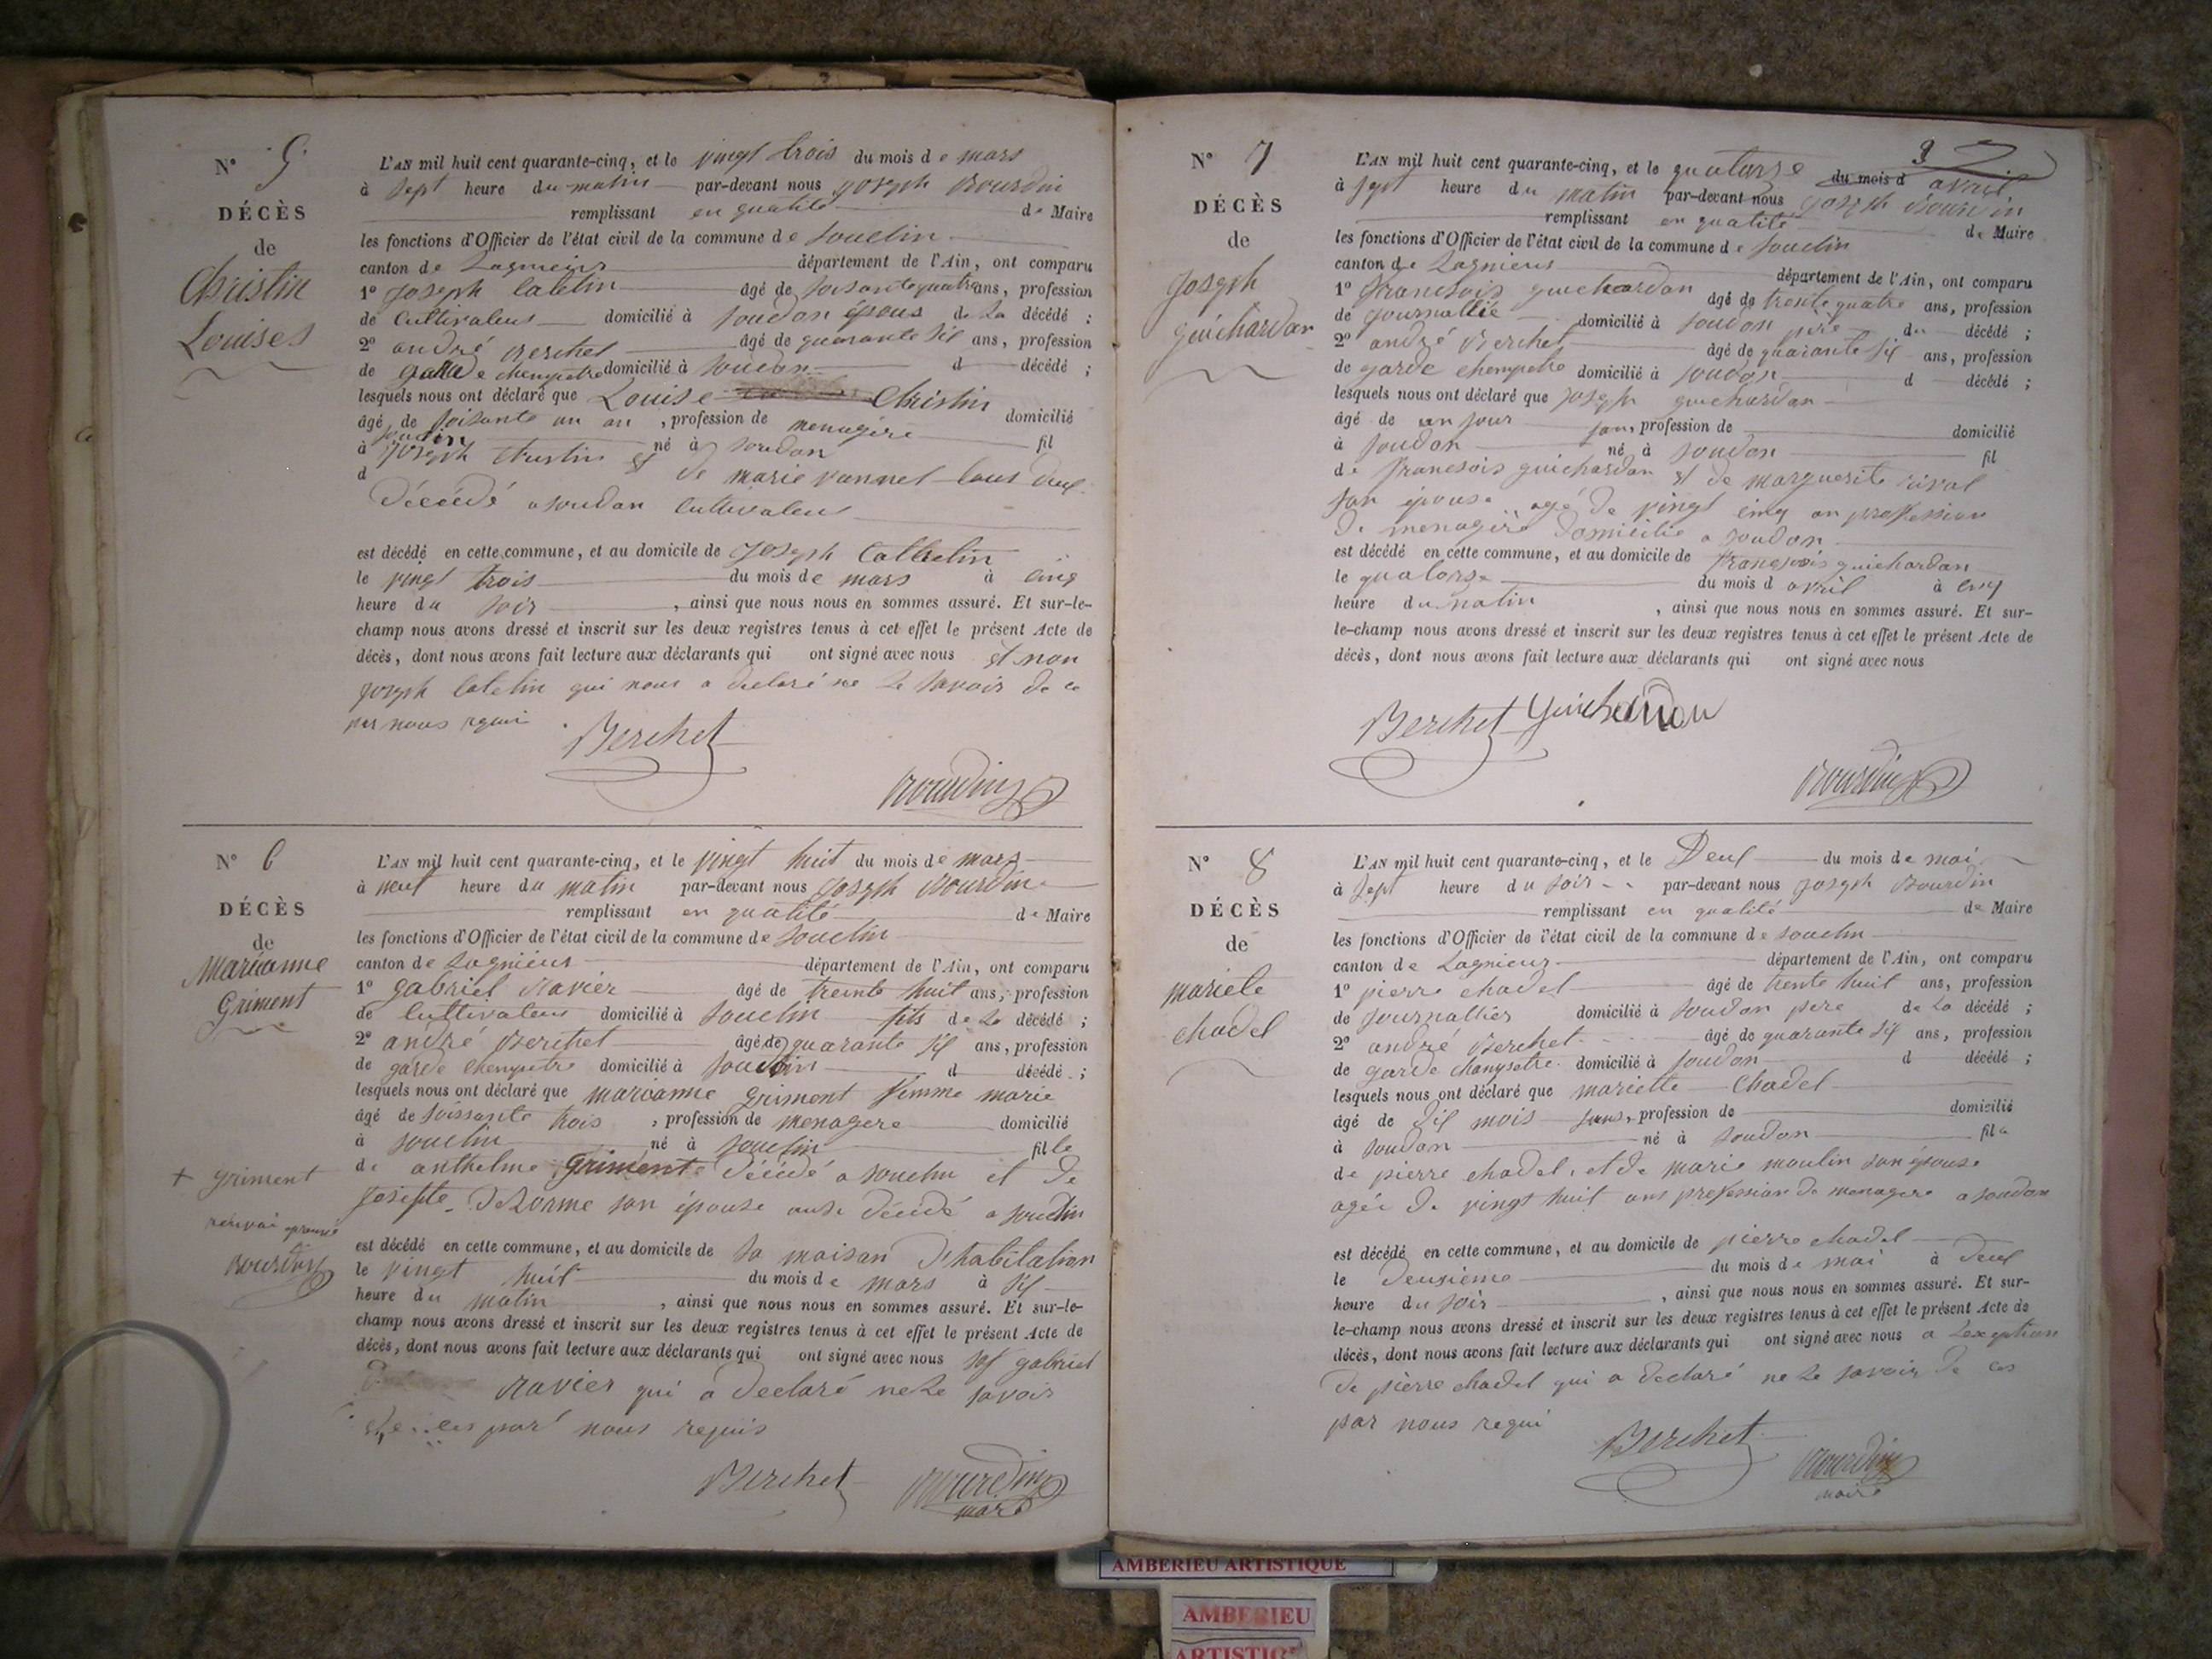 N° 5
DÉCÈS
de
Christin
Louises
L'AN mil huit cent quarante-cinq, et le vingt trois du mois de mars
à sept heure du matin par-devant nous joseph Bourdin
remplissant en qualité de Maire
les fonctions d'Officier de l'état civil de la commune de souclin
canton de Lagnieux département de l'Ain, ont comparu
1° joseph Catelin âgé de soisante quatre ans, profession
de cultivateur domicilié à soudon époux de La décédé ;
2° andré Berchet âgé de quarante six ans, profession
de garde chempetre domicilié à soudon d décédé ;
lesquels nous ont déclaré que Louise Christin
âgé de soisante un an , profession de menagere domicilié
à soudon né à soudon fil
d joseph Christin et de marie vannel tous deux
décédé a soudan cultivateur
est décédé en cette commune, et au domicile de joseph Cattelin
le vingt trois du mois de mars à cinq
heure du soir , ainsi que nous nous en sommes assuré. Et sur-le-
champ nous avons dressé et inscrit sur les deux registres tenus à cet effet le présent Acte de
décès, dont nous avons fait lecture aux déclarants qui ont signé avec nous et non
joseph Catelin qui nous a declaré ne Le savoir de ce
par nous requi
Berchet
Bourdin
N° 6
DÉCÈS
de
Marianne
Griment
+ griment
renvoi aprouvé
Bourdin
L'AN mil huit cent quarante-cinq, et le vingt huit du mois de mars
à neuf heure du matin par-devant nous joseph Bourdin
remplissant en qualité de Maire
les fonctions d'Officier de l'état civil de la commune de souclin
canton de Lagnieux département de l'Ain, ont comparu
1° gabriel Ravier âgé de trente huit ans, profession
de cultivateur domicilié à souclin fils de La décédé ;
2° andré Berchet âgé de quarante six ans, profession
de garde chempetre domicilié à souclin d décédé ;
lesquels nous ont déclaré que marianne griment femme marie
âgé de soissante trois , profession de menagere domicilié
à souclin né à souclin fille
de anthelme Griment décédé a souclin et de
josepte Delorme son épouse ausi décédé a souclin
est décédé en cette commune, et au domicile de sa maison d'habitation
le vingt huit du mois de mars à six
heure du matin , ainsi que nous nous en sommes assuré. Et sur-le-
champ nous avons dressé et inscrit sur les deux registres tenus à cet effet le présent Acte de
décès, dont nous avons fait lecture aux déclarants qui ont signé avec nous sof gabriel
Ravier qui a declaré ne Le savoir
par nous requis
Berchet Bourdin
maire
N° 7
DÉCÈS
de
joseph
guichardan
L'AN mil huit cent quarante-cinq, et le quatorze du mois d avril
à sept heure du matin par-devant nous joseph Bourdin
remplissant en qualité de Maire
les fonctions d'Officier de l'état civil de la commune de souclin
canton de Lagnieux département de l'Ain, ont comparu
1° francsois guichardan âgé de trente quatre ans, profession
de journallié domicilié à soudon père du décédé ;
2° andré Berchet âgé de quarante six ans, profession
de garde chempetre domicilié à soudon d décédé ;
lesquels nous ont déclaré que joseph guichardan
âgé de un jour sans, profession de domicilié
à soudon né à soudon fil
de francsois guichardan et de marguerite rival
son épouse agé de vingt cinq an profession
de menagère domicilié a soudon
est décédé en cette commune, et au domicile de francsois guichardan
le quatorse du mois d avril à cinq
heure du matin , ainsi que nous nous en sommes assuré. Et sur-
le-champ nous avons dressé et inscrit sur les deux registres tenus à cet effet le présent Acte de
décès, dont nous avons fait lecture aux déclarants qui ont signé avec nous
Berchet guichardan
Bourdin
N° 8
DÉCÈS
de
mariete
chadel
L'AN mil huit cent quarante-cinq, et le Deux du mois de mai
à sept heure du soir par-devant nous joseph Bourdin
remplissant en qualité de Maire
les fonctions d'Officier de l'état civil de la commune de souclin
canton de Lagnieux département de l'Ain, ont comparu
1° pierre chadel âgé de trente huit ans, profession
de journallier domicilié à soudon pere de La décédé ;
2° andré Berchet âgé de quarante six ans, profession
de garde champetre domicilié à soudon d décédé ;
lesquels nous ont déclaré que mariette Chadel
âgé de dix mois sans, profession de domicilié
à soudon né à soudon fil
de pierre chadel et de marie moulin son épouse
agée de vingt huit ans profession de menagere a soudon
est décédé en cette commune, et au domicile de pierre chadel
le deusième du mois de mai à deux
heure du soir , ainsi que nous nous en sommes assuré. Et sur-
le-champ nous avons dressé et inscrit sur les deux registres tenus à cet effet le présent Acte de
décès, dont nous avons fait lecture aux déclarants qui ont signé avec nous a Lexeption
de pierre chadel qui a declaré ne Le savoir de ces
par nous requi
Berchet Bourdin
maire
AMBERIEU ARTISTIQUE
AMBERIEU
ARTISTIQ